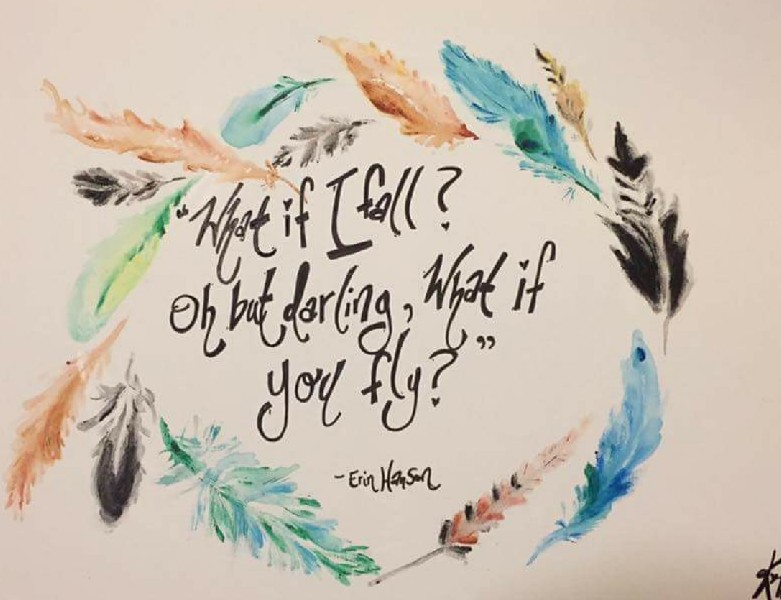 “What if I fall?
Oh but darling, What if
you fly?”
-Erin Hanson